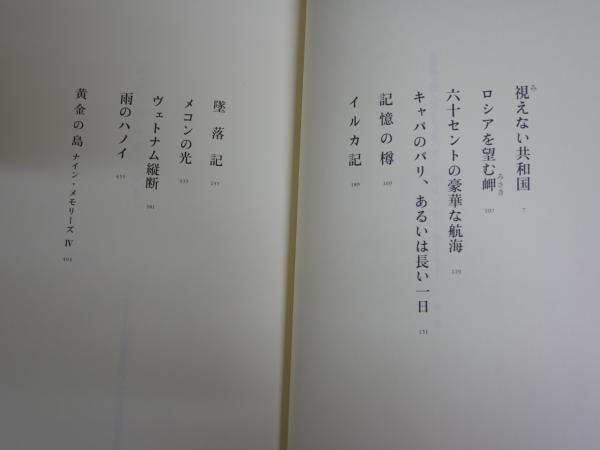 視えない共和国 7
ロシアを望む岬 107
六十セントの豪華な航海 129
キャパのパリ、あるいは長い一日 151
記憶の樽 169
イルカ記 189
墜落記
メコンの光
ヴェトナム縦断
雨のハノイ
黄金の島 ナイン・メモリーズ Ⅳ